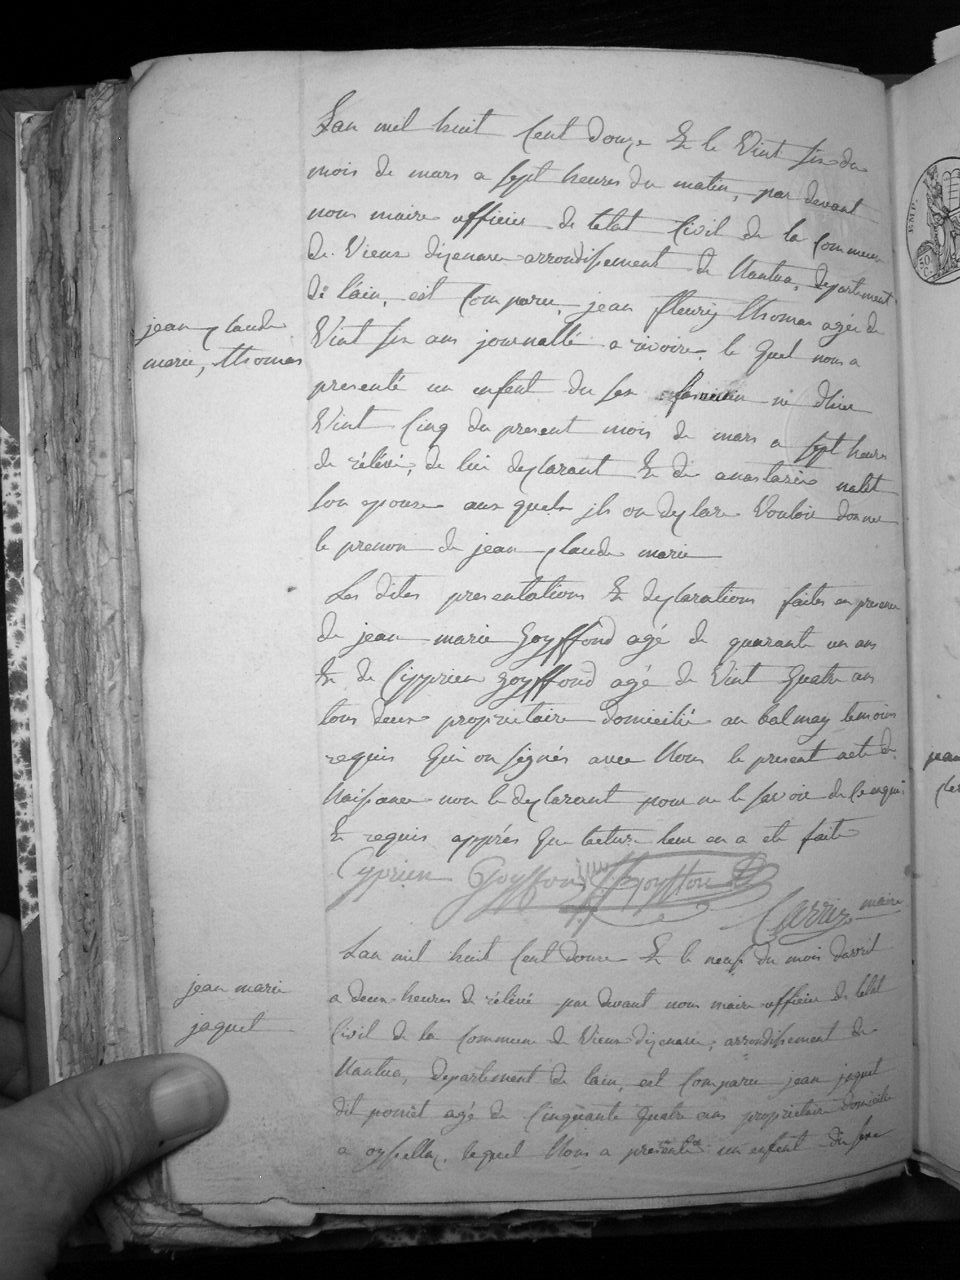 Lan mil huit Cent douze & le Vint six du
mois de mars a sept heures du matin, par devant
nous maire officier de letat Civil de la Commune
de Vieux dizenave arrondissement de Nantua, departement
de lain, est Comparu, jean fleury thomas agée de
jean Claude
marie, thomas
Vint six ans journallié a le quel nous a
presenté un enfant du sex né dhier
Vint Cinq du present mois de mars a sept heures
de rélévé, de lui declarant & de anastasie nalet
son epouse aux quels jls on declare Vouloir donner
le prenom de jean Claude marie
Les dites presentations & declarations faites en presence
de jean marie Goyffond agé de quarante un ans
& de Cipprien goyffond agé de Vint quatre ans
tous deux proprietaire domicilié au balmay temoins
requis Qui on signés avec Nous le present acte de
Naissance non le declarant pour ne le savoir de lenquis
& requis apprés que lecture leur en a ete faite
Cyprien Goyffon jm Goyffon
Carrier maire
jean marie
jaquet
Lan mil huit Cent douze & le neuf du mois davril
a deux heures de rélévé par devant nous maire officier de letat
Civil de la Commune de Vieux dizenave, arrondissement de
Nantua, departement de lain, est Comparu jean jaquet
dit agé de Cinquante quatre ans proprietaire domicilié
a oyssella, lequel Nous a presenté un enfant du sexe
EMP.
jean